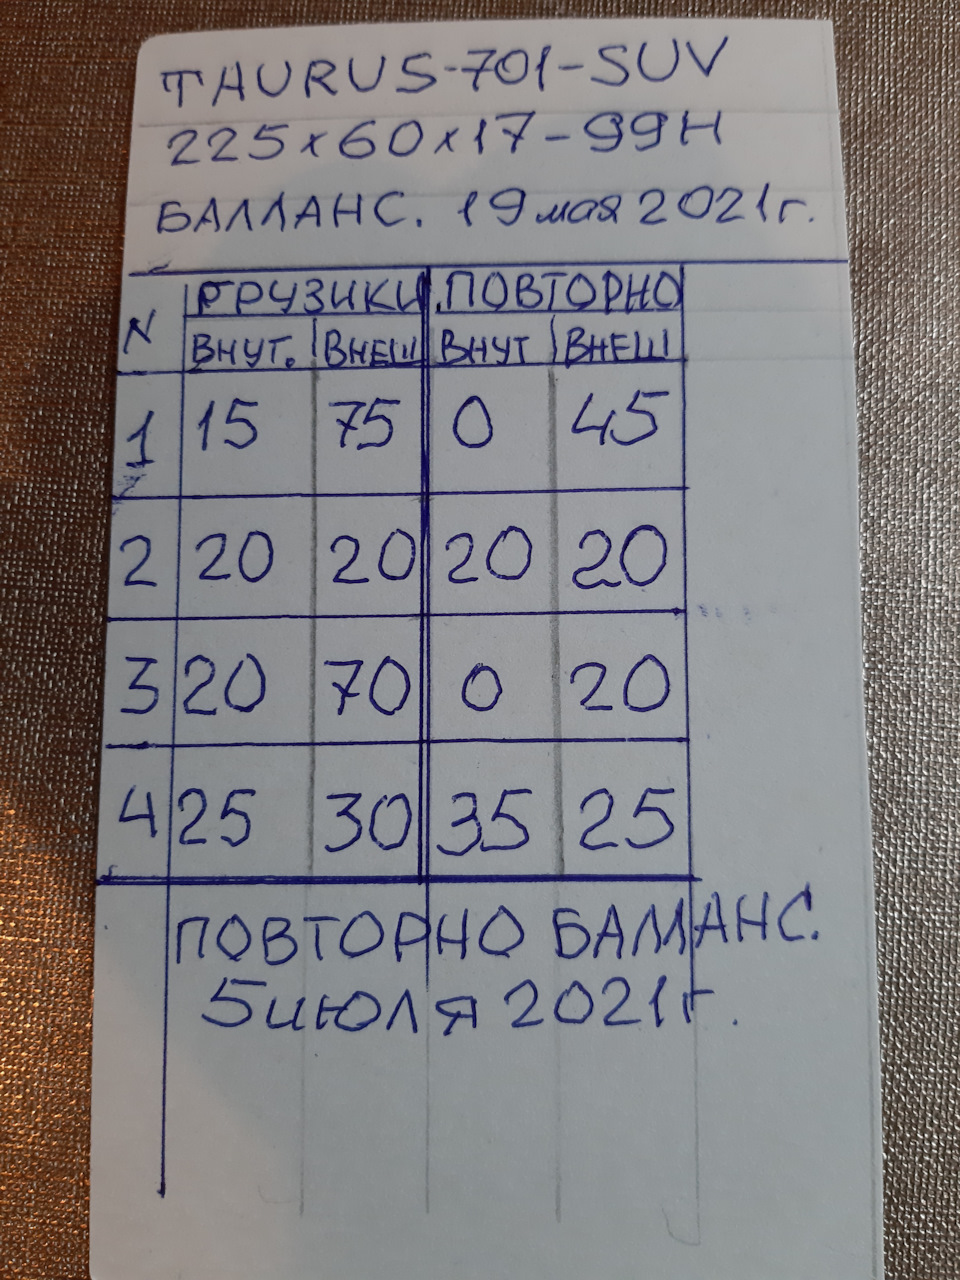 TAURUS-701-SUV
225x60x17-99H
БАЛЛАНС. 19 мая 2021г.
N ГРУЗИКИ ПОВТОРНО
ВНУТ. ВНЕШ ВНУТ ВНЕШ
1 15 75 0 45
2 20 20 20 20
3 20 70 0 20
4 25 30 35 25
ПОВТОРНО БАЛЛАНС.
5 июля 2021г.